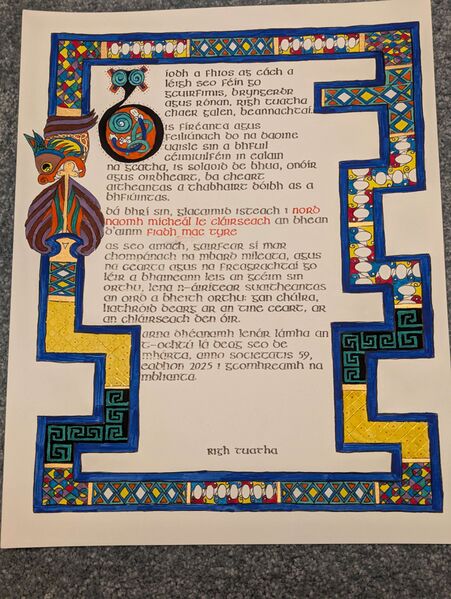 bíodh a fhios ag cách a
léigh seo féin go
gcuirfimis, bryngerðr
agus rónán, rígh tuatha
chaer galen, beannachtaí.
is fíréanta agus
feiliúnach do na daoine
uaisle sin a bhfuil
céimiúilféin in ealaín
na geatha, is solaoid de bhua, onóir
agus oirdheart, ba cheart
aitheantas a thabhairt dóibh as a
bhfiúntas.
dá bhrí sin, glacaimid isteach i nord
naomh mícheál le cláirseach an bhean
d'ainm fiadh mac tyre
as seo amach, gairfear sí mar
chompánach na mbard míleata, agus
na cearta agus na freagrachtaí go
léir a bhaineann leis an gcéim sin
orthu, lena n-áirítear suaitheantas
an oird a bheith orthu: gan cháilra,
liathróid dearg ar an tine ceart, ar
an chláirseach den óir.
arna dhéanamh lenár lámha an
t-ochtú lá déag seo de
mhárta, anno societatis 59,
eadhon 2025 i gcomhreamh na
mblianta.
rígh tuatha